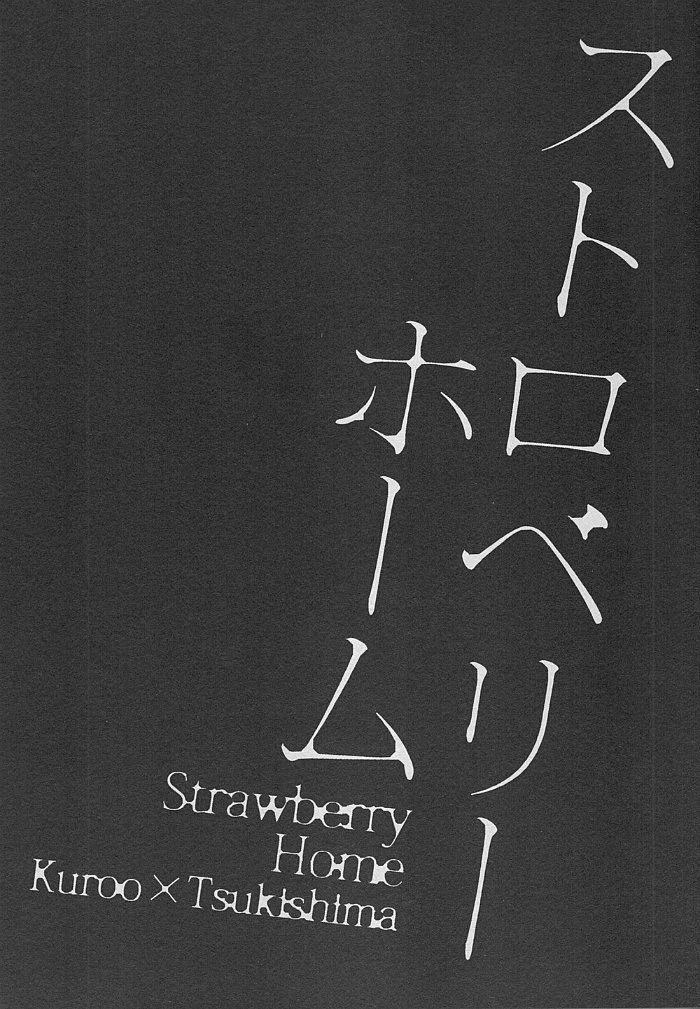 ストロベリー
ホーム
Strawberry
Home
Kuroo×Tsukishima